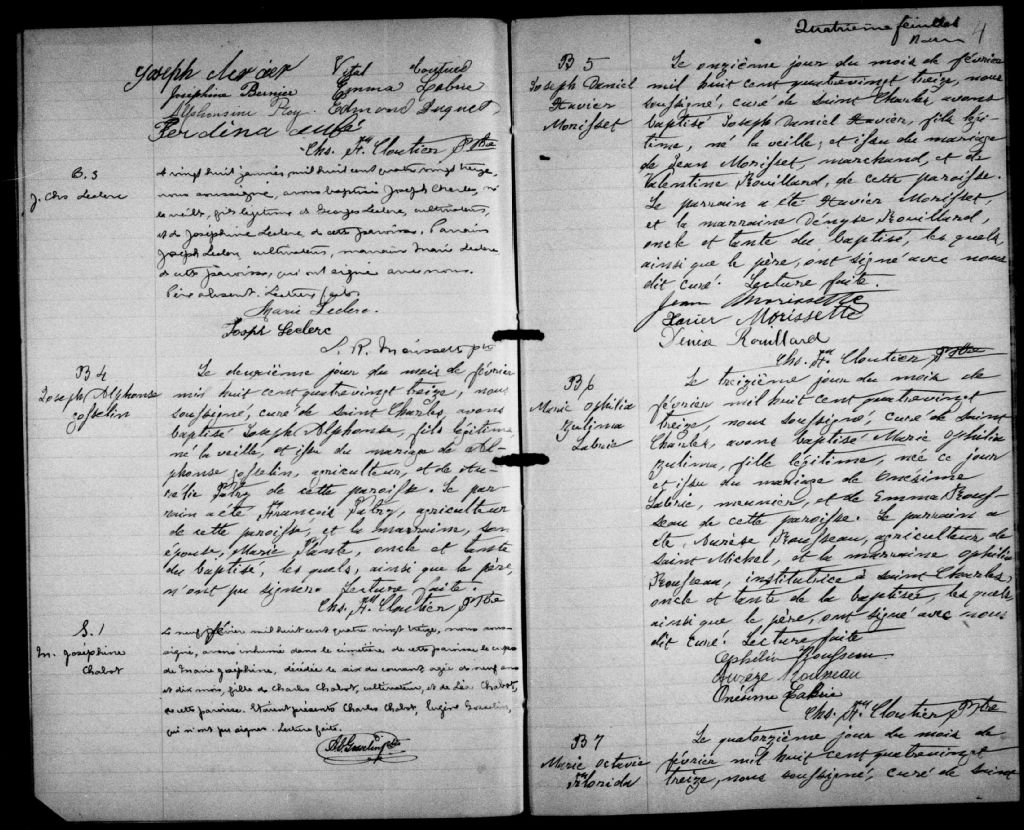 Joseph Mercier Vital Couture
Joséphine Bernier Emma Labrie
Alphonsine Roy Edmond Duquet
Ferdina Aubé
Chs. Fr. Cloutier Ptre
B. 3
J. Chs Leclerc
vingt huit janvier mil huit cent quatre vingt treize,
nous soussigné, avons baptisé Joseph Charles, né
la veille, fils légitime de Georges Leclerc, cultivateur,
et de Joséphine Leclerc de cette paroisse. Parrain
Joseph Leclerc, cultivateur, marraine Marie Leclerc
de cette paroisse, qui ont signé avec nous.
Père absent. Lecture faite.
Marie Leclerc.
Joseph Leclerc
ptre
B 4
Joseph Alphonse
Gosselin
Le deuxième jour du mois de février
mil huit cent quatrevingt treize, nous
soussigné, curé de Saint Charles, avons
baptisé Joseph Alphonse, fils légitime,
né la veille, et issu du mariage de Al-
phonse Gosselin, agriculteur, et de Au-
rélie Patry de cette paroisse. Le par-
rain a été François Patry, agriculteur
de cette paroisse, et la marraine, son
épouse, Marie Plante, oncle et tante
du baptisé, les quels, ainsi que le père,
n'ont pu signer. Lecture faite.
Chs. Fr. Cloutier Ptre
S. 1
M. Joséphine
Chabot
Le neuf février mil huit cent quatre vingt treize, nous sous-
signé, avons inhumé dans le cimetière de cette paroisse le corps
de Marie Joséphine, décédée le six du courant, agée de neuf ans
et dix mois, fille de Charles Chabot, cultivateur, et de Léa Chabot,
de cette paroisse. Etaient présents Charles Chabot, Eugène Gosselin,
qui n'ont pu signer. Lecture faite.
Gosselin Ptre
Quatrième feuillet
4
B 5
Joseph Daniel
Xavier
Morisset
Le onzième jour du mois de février
mil huit cent quatrevingt treize, nous
soussigné, curé de Saint Charles avons
baptisé Joseph Daniel Xavier, fils légi-
time, né la veille, et issu du mariage
de Jean Morisset, marchand, et de
Valentine Rouillard, de cette paroisse.
Le parrain a été Xavier Morisset,
et la marraine Dényse Rouillard,
oncle et tante du baptisé, les quels,
ainsi que le père, ont signé avec nous
dit curé. Lecture faite.
Jean Morissette
Xavier Morissette
Denise Rouillard
Chs. Fr. Cloutier Ptre
B 6
Marie Ophilia
Zulima
Labrie
Le treizième jour du mois de
février mil huit cent quatrevingt
treize, nous soussigné, curé de Saint
Charles, avons baptisé Marie Ophilia
Zulima, fille légitime, née ce jour
et issu du mariage de Onésime
Labrie, meunier, et de Emma Rous-
seau de cette paroisse. Le parrain a
été Aurèse Rousseau, agriculteur de
Saint Michel, et la marraine Ophilia
Rousseau, institutrice à Saint Charles,
oncle et tante de la baptisée, les quels
ainsi que le père, ont signé avec nous
dit curé. Lecture faite
Ophélia Rousseau
Rousseau
Onésime Labrie
Chs. Fr. Cloutier Ptre
B 7
Marie Octavie
Florida
Le quatorzième jour du mois de
février mil huit cent quatrevingt
treize, nous soussigné, curé de Saint